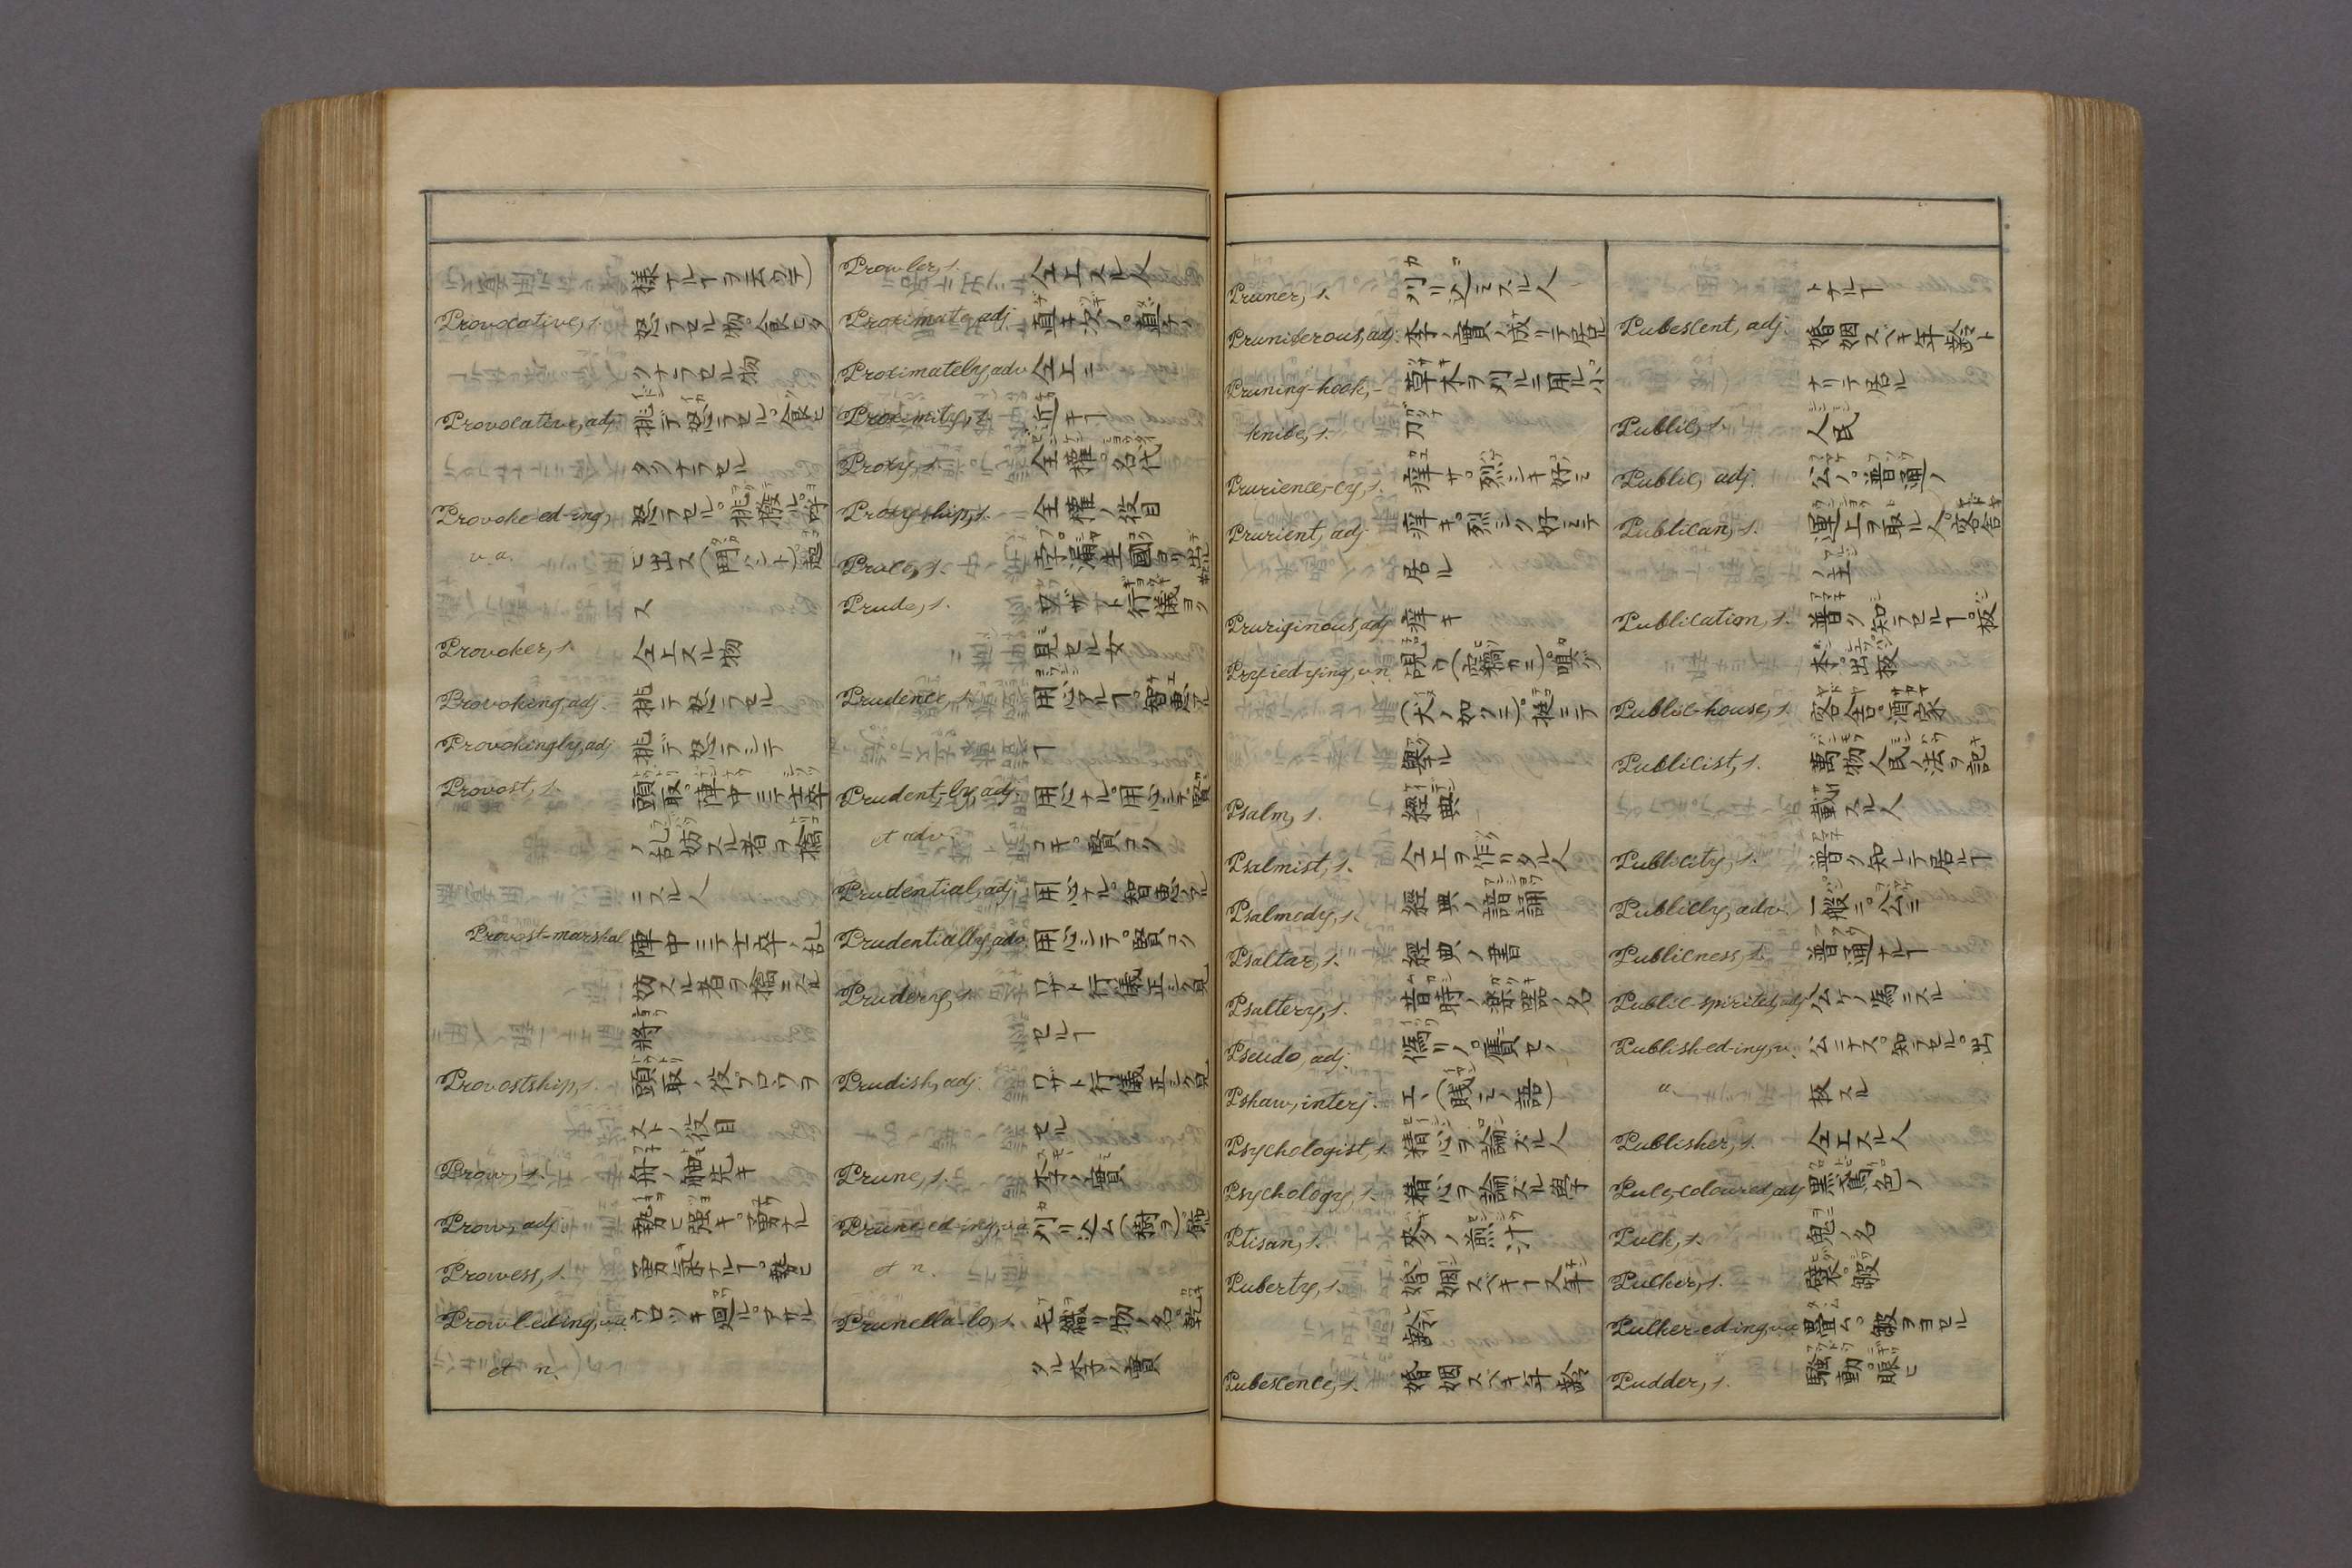 様ナルヿヲ云ウテ)
Provocative, s. 怒ラセル物。食ヒタ
クナラセル物
Provocative, adj. 挑デ怒ラセル。食ヒ
タクナラセル
Provoke-ed-ing, 怒ラセル。挑撥ル。呼
v. a. ビ出ス(闘ハント)起
ス
Provoker, s. 仝上スル物
Provoking, adj. 挑テ怒ラセル
Provokingly, adj. 挑デ怒ラシテ
Provost, s. 頭取。陣中ニテ士卒
ノ乱妨スル者ヲ擒
ニスル人
Provost-marshal 陣中ニテ士卒ノ乱
妨スル者ヲ擒ニスル
将
Provostship, s. 頭取ノ役プロヲヲ
ストノ役目
Prow, s. 舟ノ舳先キ
Prow, adj. 勢ヒ強キ。勇ナル
Prowess, s. 勇氣ナルヿ。勢ヒ
Prowl-ed-ing, v.a. ウロツキ廻ル。アサル
et n.
Prowler, s. 仝上スル人
Proximate, adj. 直キ次ノ。直キノ
Proximately, adv. 仝上ニ
Proximity, s. 近キヿ
Proxy, s. 全權。名代
Proxyship, s. 全權ノ役目
Pruce, s. 孛漏生國ヨリ出ル
Prude, s. ワザト行儀ヨク
見セル女
Prudence, s. 用心アルヿ。智恵アル
ヿ
Prudent-ly, adj. 用心ナル。用心シテ。賢
et adv. コキ。賢コク
Prudential, adj. 用心ナル。智恵アル
Prudentially, adv. 用心シテ。賢コク
Prudery, s. ワザト行儀正シク見
セルヿ
Prudish, adj. ワザト行儀正シク見
セル
Prune, s. 李ノ實
Prune-ed-ing, v.a. 刈リ込ム(樹ヲ)飾
et n.
Prunella-lo, s. 毛織リ物ノ名。乾
タル李ノ實
Pruner, s. 刈リ込ミスル人
Pruniferous, adj. 李ノ實ノ成リテ居ル
Pruning-hook,- 草木ヲ刈ルニ用ル小
knife, s. 刀
Prurience,-cy, s. 痒サ。烈シキ好ミ
Prurient, adj. 痒キ。烈シク好ミテ
居ル
Pruriginous, adj. 痒キ
Pry-ied-ying, v.n. 覗ウ(密カニ)嗅グ
(犬ノ如クニ)。梃ニテ
擧ル
Psalm, s. 經典
Psalmist, s. 仝上ヲ作リタル人
Psalmody, s. 經典ノ諳誦
Psaltar, s. 經典ノ書
Psaltery, s. 昔時ノ樂器ノ名
Pseudo, adj. 偽リノ。贋セノ
Pshaw, interj. エヽ(賤ミノ語)
Psychologist, s. 精心ヲ論ズル人
Psychology, s. 精心ヲ論ズル學
Ptisan, s. 麥ノ煎汁
Puberty, s. 婚姻スベキ年
齢
Pubescence, s. 婚姻スベキ年齢
トナルヿ
Pubescent, adj. 婚姻スベキ年齢ト
ナリテ居ル
Public, s. 人民
Public, adj. 公ノ。普通ノ
Publican, s. 運上ヲ取ル人。客舎
ノ主
Publication, s. 普ク知ラセルヿ。板
本。出板
Public-house, s. 客舎。酒家
Publicist, s. 萬物人民ノ法ヲ記
載スル人
Publicity, s. 普ク知レテ居ルヿ
Publicly, adv. 一般ニ。公ニ
Publicness, s. 普通ナルヿ
Public-spirited, adj. 公ケノ為ニスル
Publish-ed-ing, v. 公ニナス。知ラセル。出
a. 板スル
Publisher, s. 仝上スル人
Puce-coloured, adj. 黒鳶色ノ
Puck, s. 鬼ノ名
Pucker, s. 襞。皺
Pucker-ed-ing, v.a. 疊ム。皺ヲヨセル
Pudder, s. 騒動。賑ヒ